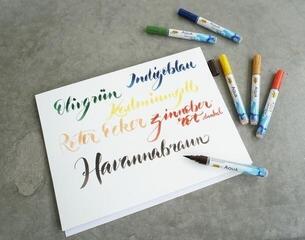 Indigoblau
Olivgrün
Kadmiumgelb
Roter Ocker Zinnober
rot dunkel
Havannabraun
AQUA